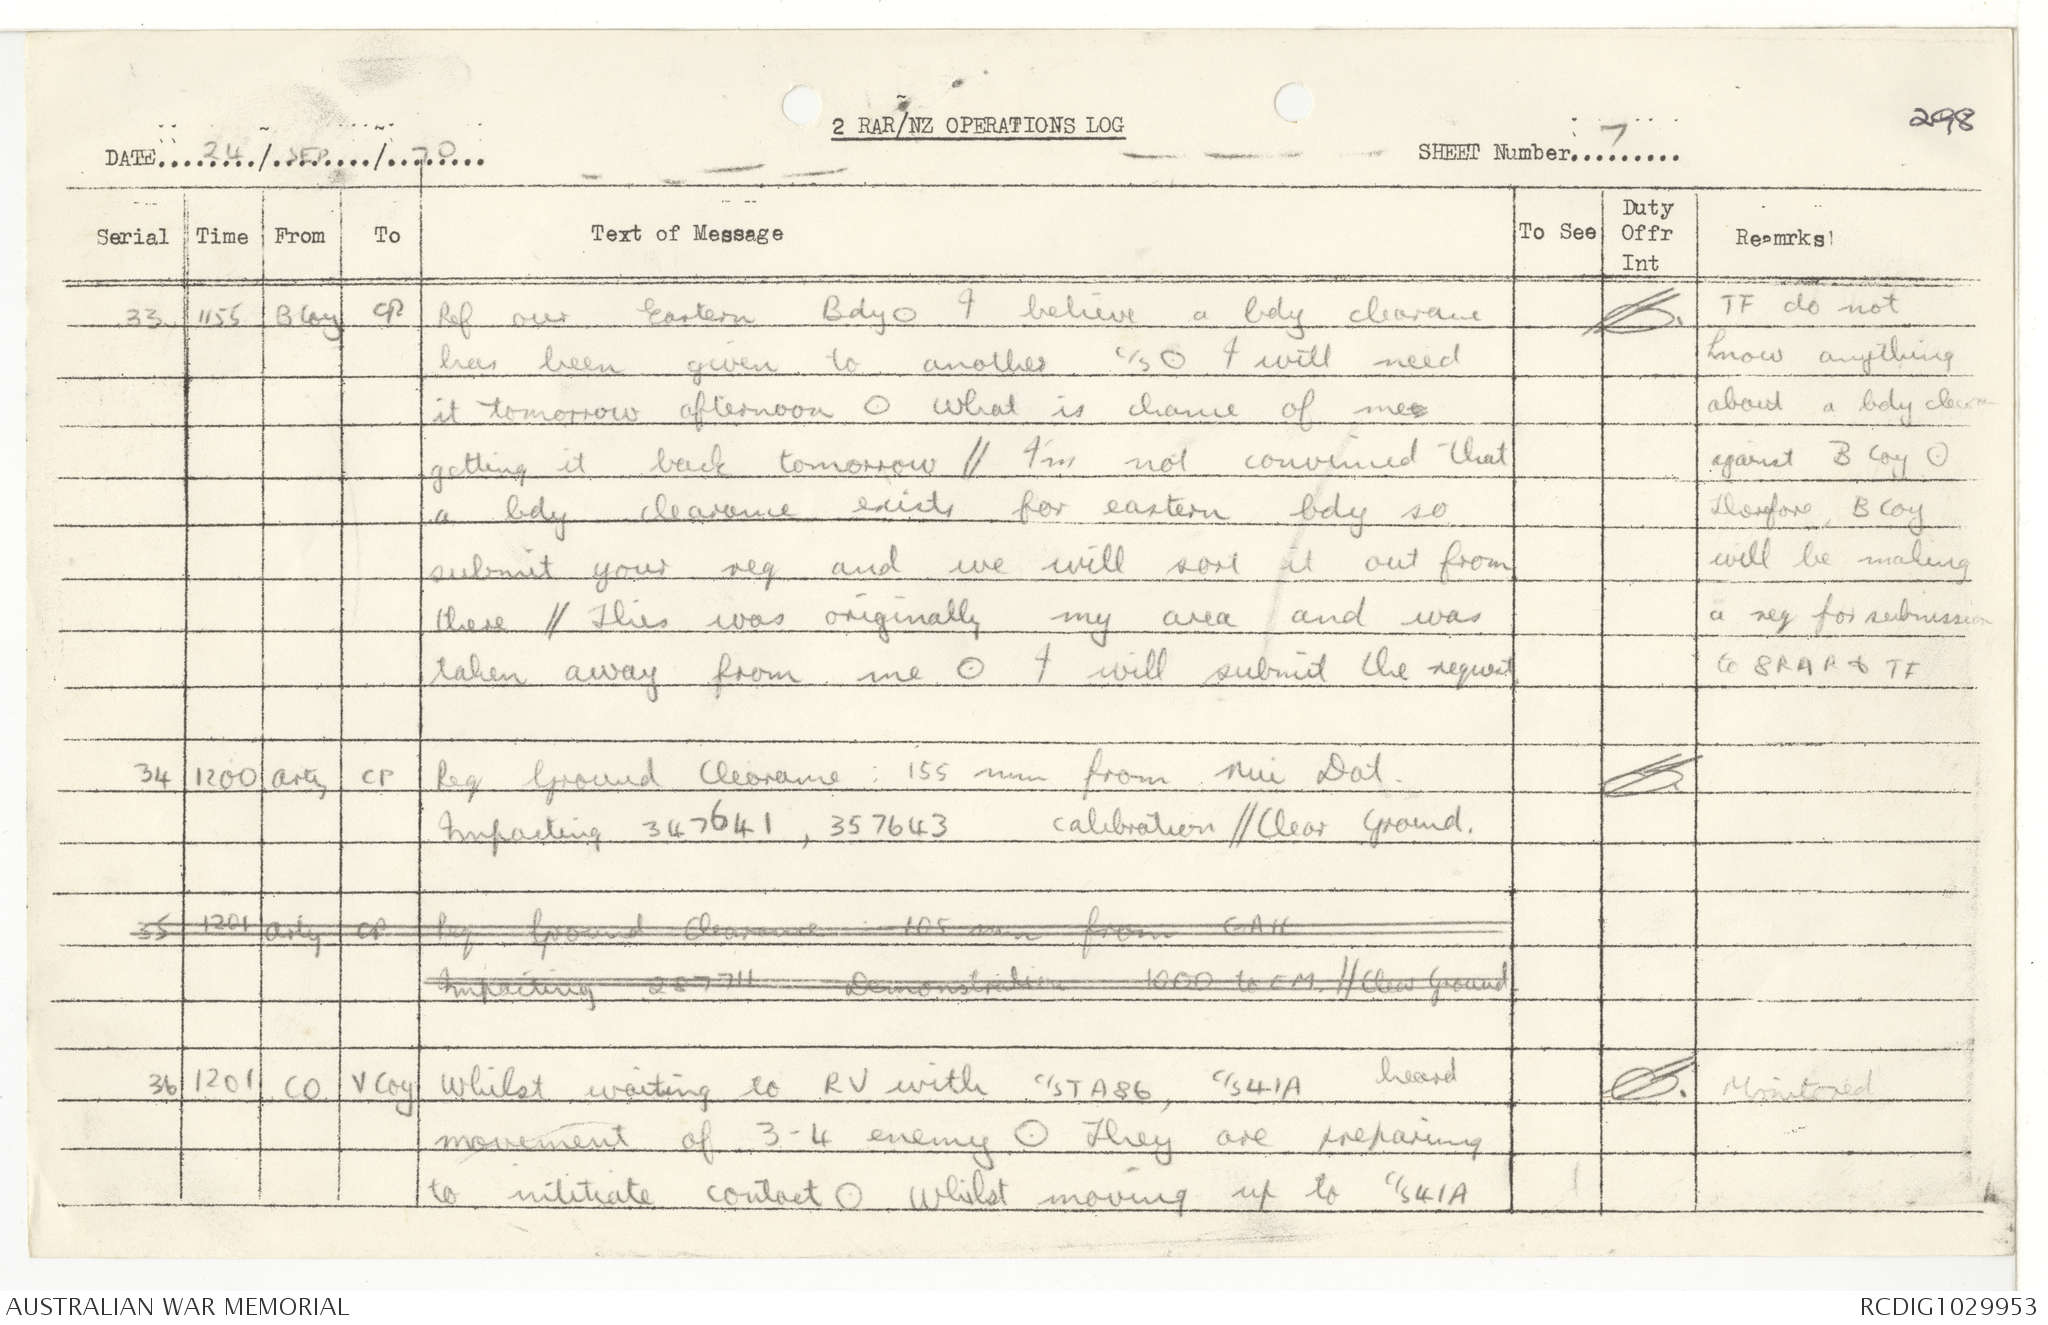 298
2 RAR/NZ OPERATIONS LOG
DATE 24/SEP/70
SHEET Number 7
Serial Time From To Text of Message To See Duty Offr Int Reamrks
33 1155 B Coy CP Ref our Eastern Bdy ⊙ I believe a bdy clearance TF do not
has been given to another c/s ⊙ I will need know anything
it tomorrow afternoon ⊙ What is chance of me about a bdy
getting it back tomorrow // I'm not convinced that against B Coy ⊙
a bdy clearance exists for eastern bdy so Therefore, B Coy
submit your req and we will sort it out from will be making
there // This was originally my area and was a req for submission
taken away from me ⊙ I will submit the request to 8RAR & TF
34 1200 Arty CP Req Ground Clearance : 155 mm from Nui Dat.
Impacting 347641, 357643 calibration // Clear Ground.
35 1201 Arty CP Req Ground Clearance 105 mm from
Impacting 287711 Demonstration 1000 to // Clear Ground
36 1201 CO V Coy Whilst waiting to RV with c/s TA86, c/s 41A heard Monitored
movement of 3-4 enemy ⊙ They are preparing
to inititiate contact ⊙ Whilst moving up to c/s 41A
AUSTRALIAN WAR MEMORIAL
RCDIG1029953